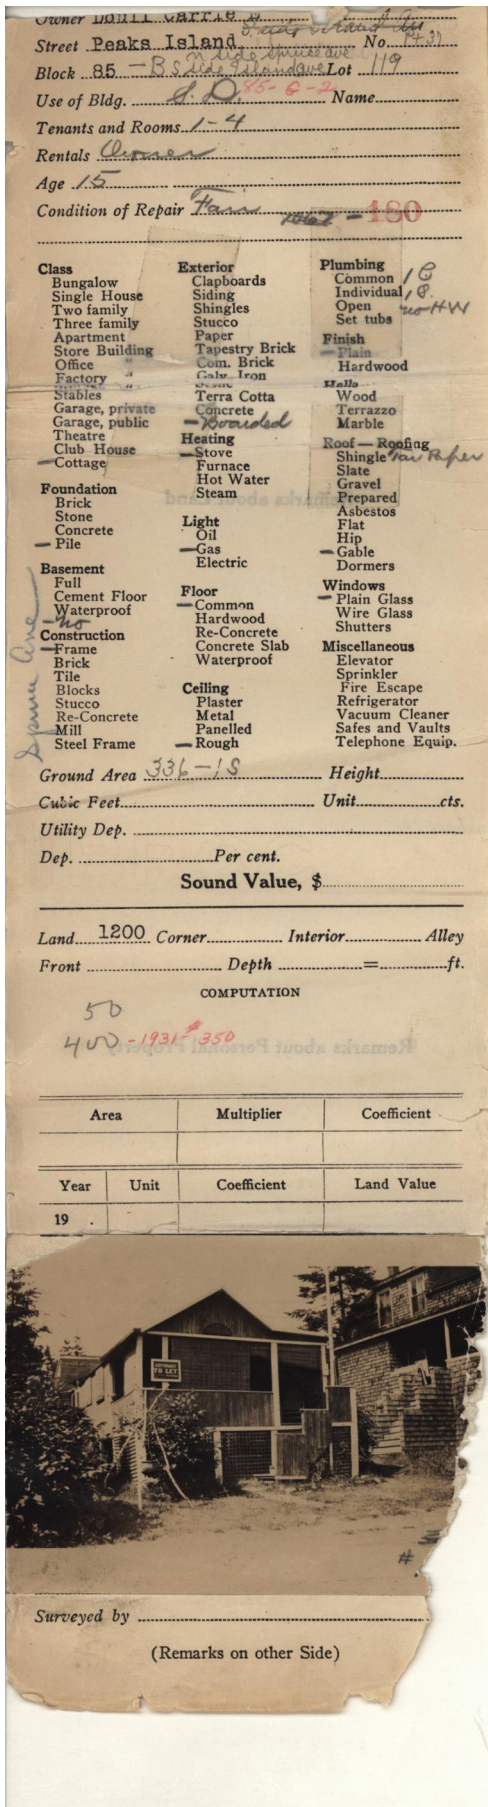 Owner Doull Carrie
Street Peaks Island No. Pt 37
N side Spruce ave
Block 85 - B S side Island ave Lot 119
85-G-2
Use of Bldg. S. D. Name
Tenants and Rooms 1-4
Rentals Owner
Age 15
Condition of Repair Fair 180
Class
Bungalow
Single House
Two family
Three family
Apartment
Store Building
Office "
Factory "
Stables
Garage, private
Garage, public
Theatre
Club House
Cottage
Foundation
Brick
Stone
Concrete
Pile
Basement
Full
Cement Floor
Waterproof
no
Construction
Frame
Brick
Tile
Blocks
Stucco
Re-Concrete
Mill
Steel Frame
Spruce Ave
Exterior
Clapboards
Siding
Shingles
Stucco
Paper
Tapestry Brick
Com. Brick
Galv. Iron
Stone
Terra Cotta
Concrete
Boarded
Heating
Stove
Furnace
Hot Water
Steam
Light
Oil
Gas
Electric
Floor
Common
Hardwood
Re-Concrete
Concrete Slab
Waterproof
Ceiling
Plaster
Metal
Panelled
Rough
Plumbing
Common 1 C
Individual 1 S.
Open no HW
Set tubs
Finish
Plain
Hardwood
Halls
Wood
Terrazzo
Marble
Roof — Roofing
Shingle Tar Paper
Slate
Gravel
Prepared
Asbestos
Flat
Hip
Gable
Dormers
Windows
Plain Glass
Wire Glass
Shutters
Miscellaneous
Elevator
Sprinkler
Fire Escape
Refrigerator
Vacuum Cleaner
Safes and Vaults
Telephone Equip.
Ground Area 336-1S Height
Cubic Feet Unit cts.
Utility Dep.
Dep. Per cent.
Sound Value, $
Land 1200 Corner Interior Alley
Front Depth = ft.
COMPUTATION
50
400 - 1931 - 350
Area Multiplier Coefficient
Year Unit Coefficient Land Value
19
COTTAGE
TO LET
#
Surveyed by
(Remarks on other Side)